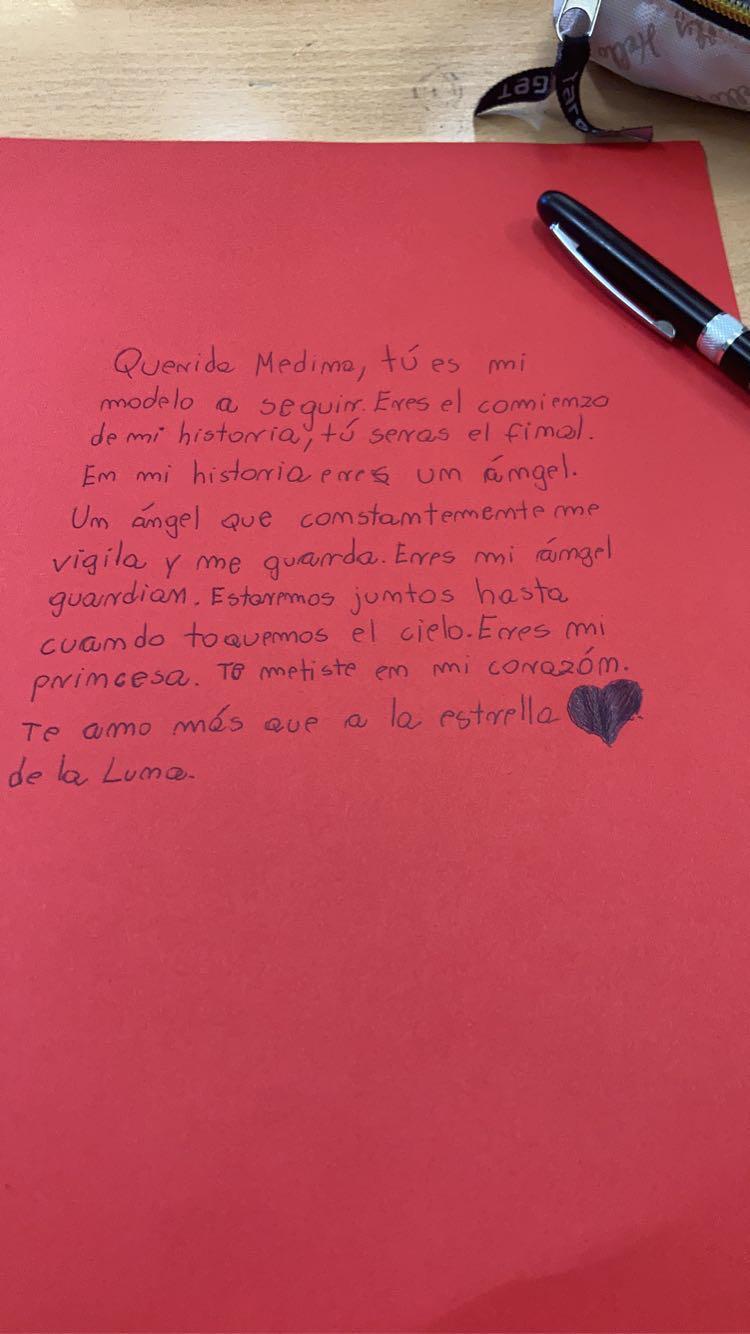 Hello
Querida Medina, tú es mi
modelo a seguir. Eres el comienzo
de mi historia, tú seras el final.
En mi historia eres un ángel.
Un ángel que constantemente me
vigila y me guarda. Eres mi ángel
guardian. Estaremos juntos hasta
cuando toquemos el cielo. Eres mi
princesa. Te metiste en mi corazón.
Te amo más que a la estrella
de la Luna.